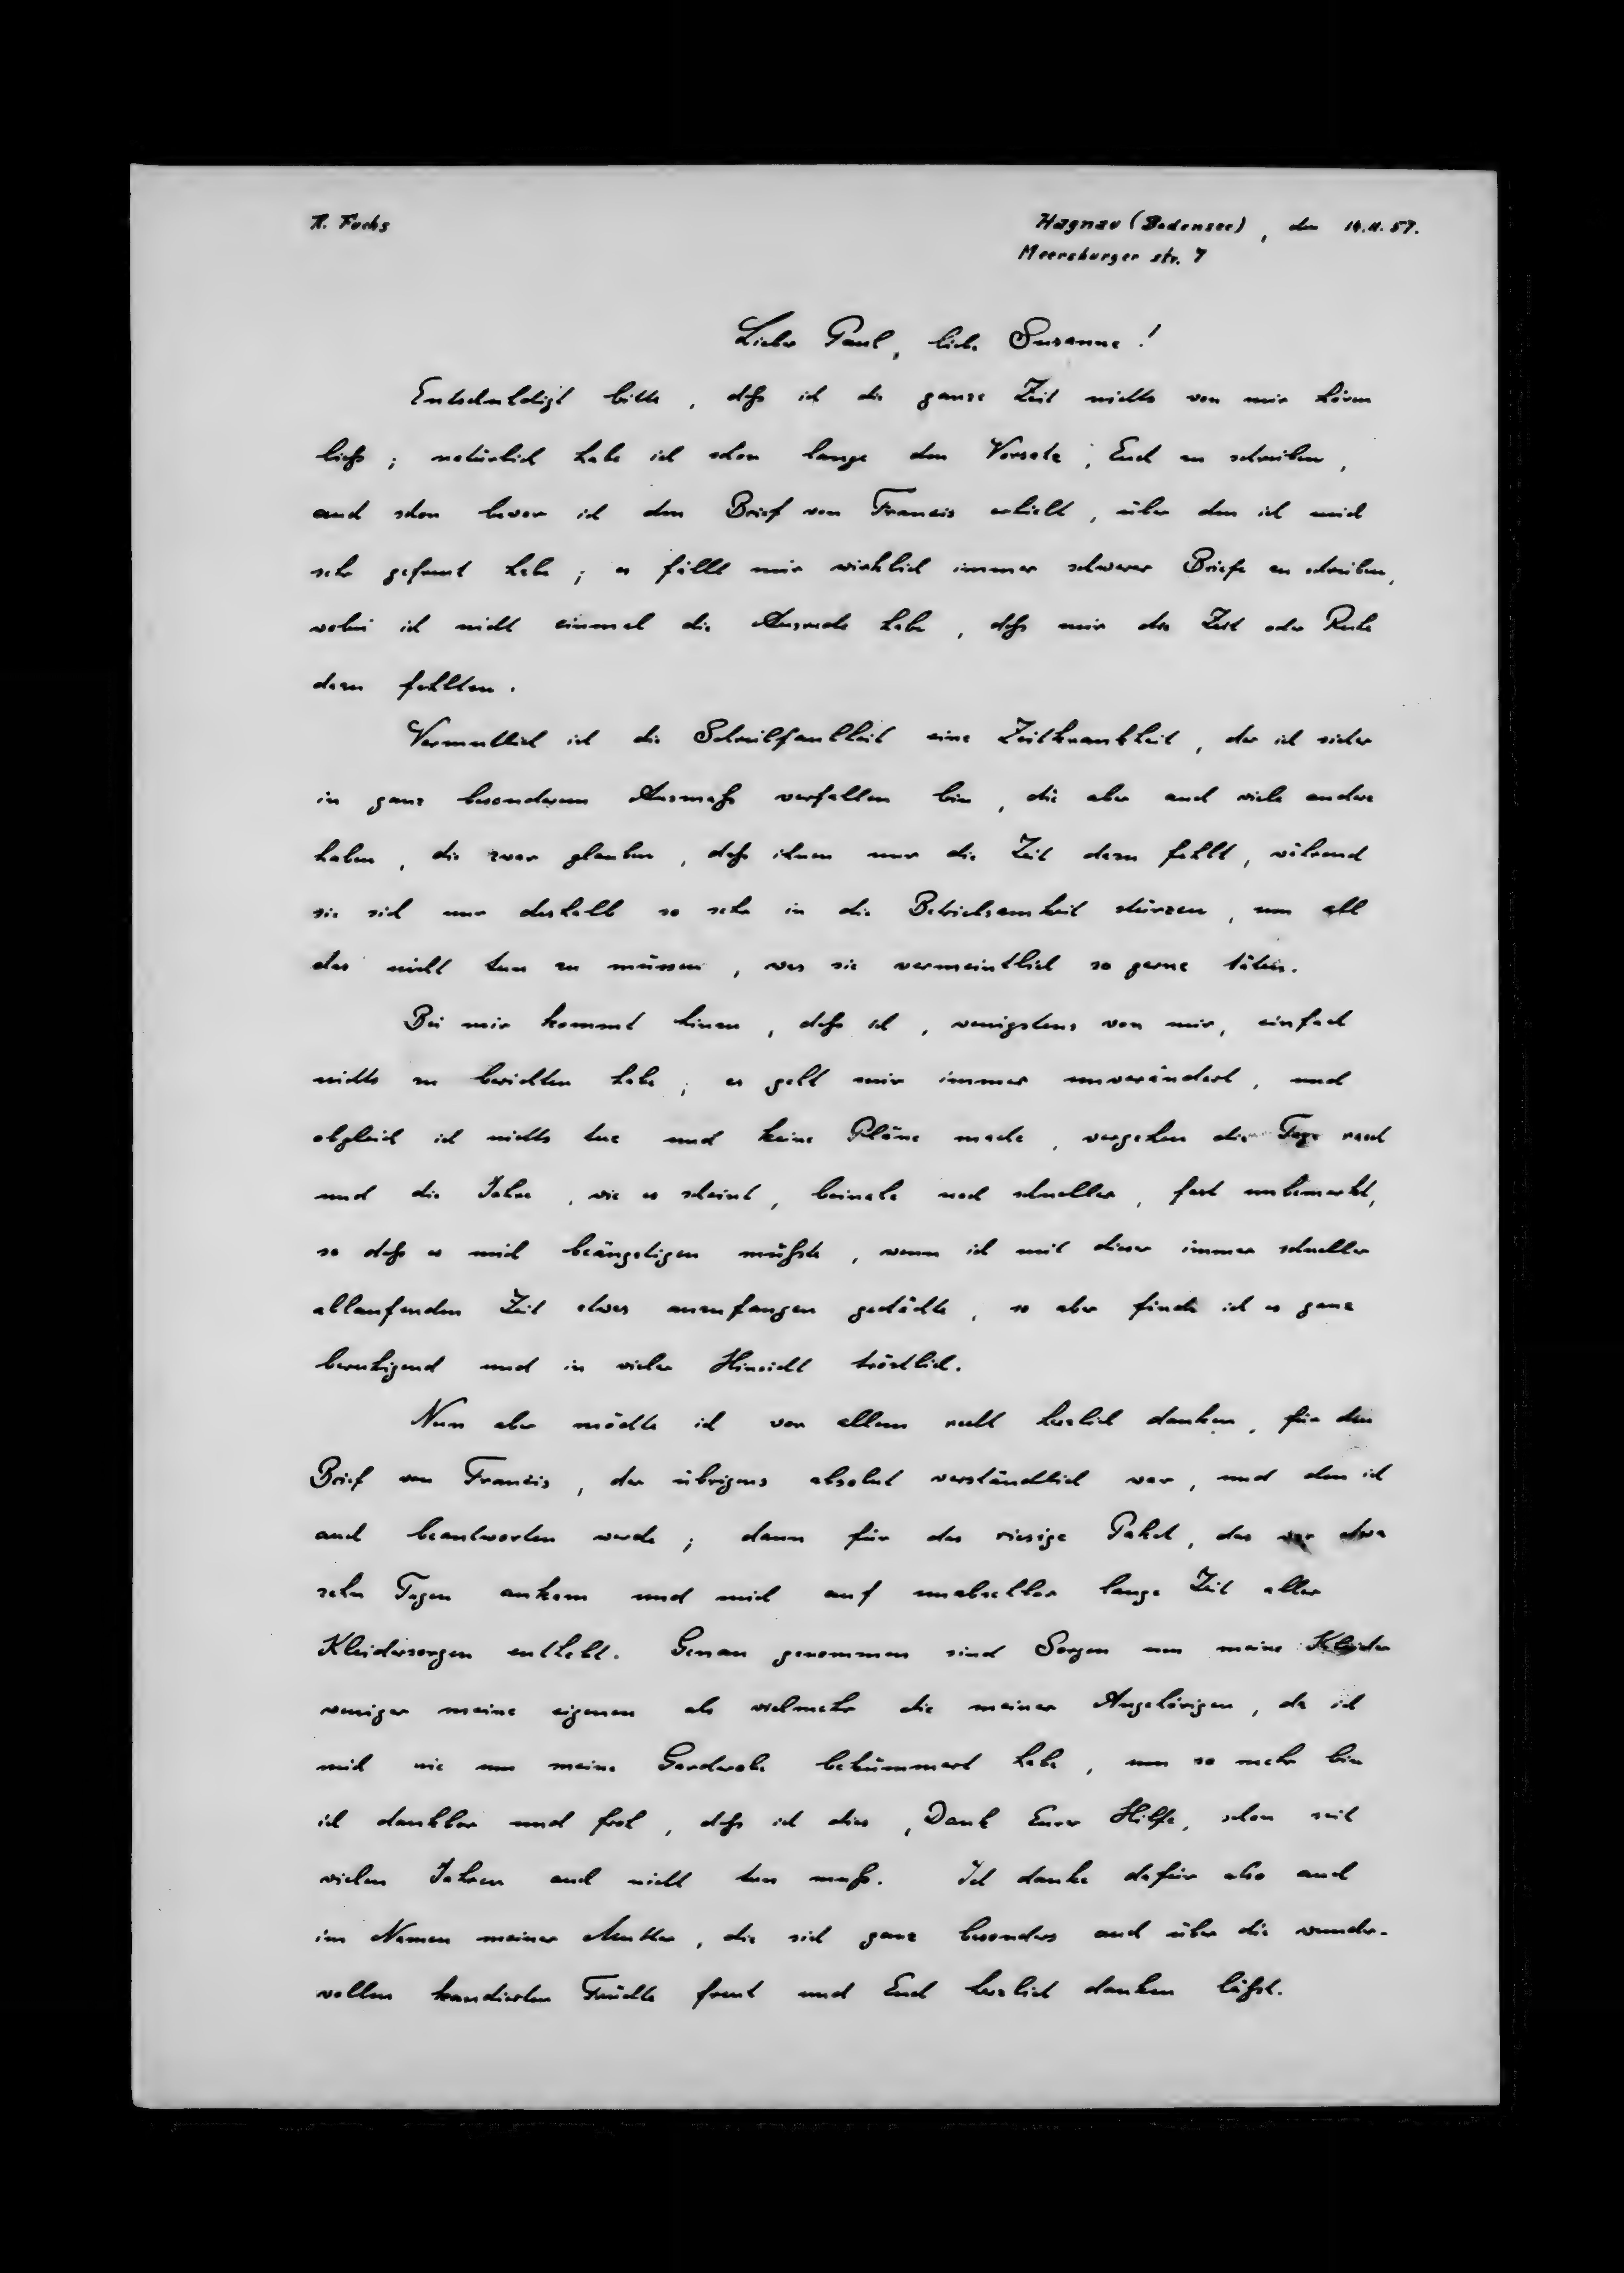 R. Fuchs
Hagnau (Bodensee), den 14.11.57.
Meersburger str. 7
Lieber Paul, liebe Susanne!
Entschuldigt bitte, daß ich die ganze Zeit nichts von mir hören
ließ; natürlich habe ich schon lange den Vorsatz, Euch zu schreiben,
auch schon bevor ich den Brief von Francis erhielt, über den ich mich
sehr gefreut habe; es fällt mir wirklich immer schwerer Briefe zu schreiben,
wobei ich nicht einmal die Ausrede habe, daß mir die Zeit oder Ruhe
dazu fehlten.
Vermutlich ist die Schreibfaulheit eine Zeitkrankheit, der ich sicher
in ganz besonderem Ausmaß verfallen bin, die aber auch viele andere
haben, die zwar glauben, daß ihnen nur die Zeit dazu fehlt, während
sie sich nur deshalb so sehr in die Betriebsamkeit stürzen, um all
das nicht tun zu müssen, was sie vermeintlich so gerne täten.
Bei mir kommt hinzu, daß ich, wenigstens von mir, einfach
nichts zu berichten habe; es geht mir immer unverändert, und
obgleich ich nichts tue und keine Pläne mache, vergehen die Tage rasch
und die Jahre, wie es scheint, beinahe noch schneller, fast unbemerkt,
so daß es mich beängstigen müßte, wenn ich mit dieser immer schneller
ablaufenden Zeit etwas anzufangen gedächte, so aber finde ich es ganz
beruhigend und in vieler Hinsicht tröstlich.
Nun aber möchte ich vor allem recht herzlich danken, für den
Brief von Francis, der übrigens absolut verständlich war, und den ich
auch beantworten werde; dann für das riesige Paket, das vor etwa
zehn Tagen ankam und mich auf unabsehbar lange Zeit aller
Kleidersorgen enthebt. Genau genommen sind Sorgen um meine Kleider
weniger meine eigenen als vielmehr die meiner Angehörigen, da ich
mich nie um meine Garderobe bekümmert habe, um so mehr bin
ich dankbar und froh, daß ich dies, Dank Eurer Hilfe, schon seit
vielen Jahren auch nicht tun muß. Ich danke dafür also auch
im Namen meiner Mutter, die sich ganz besonders auch über die wunder-
vollen kandierten Früchte freut und Euch herzlich danken läßt.